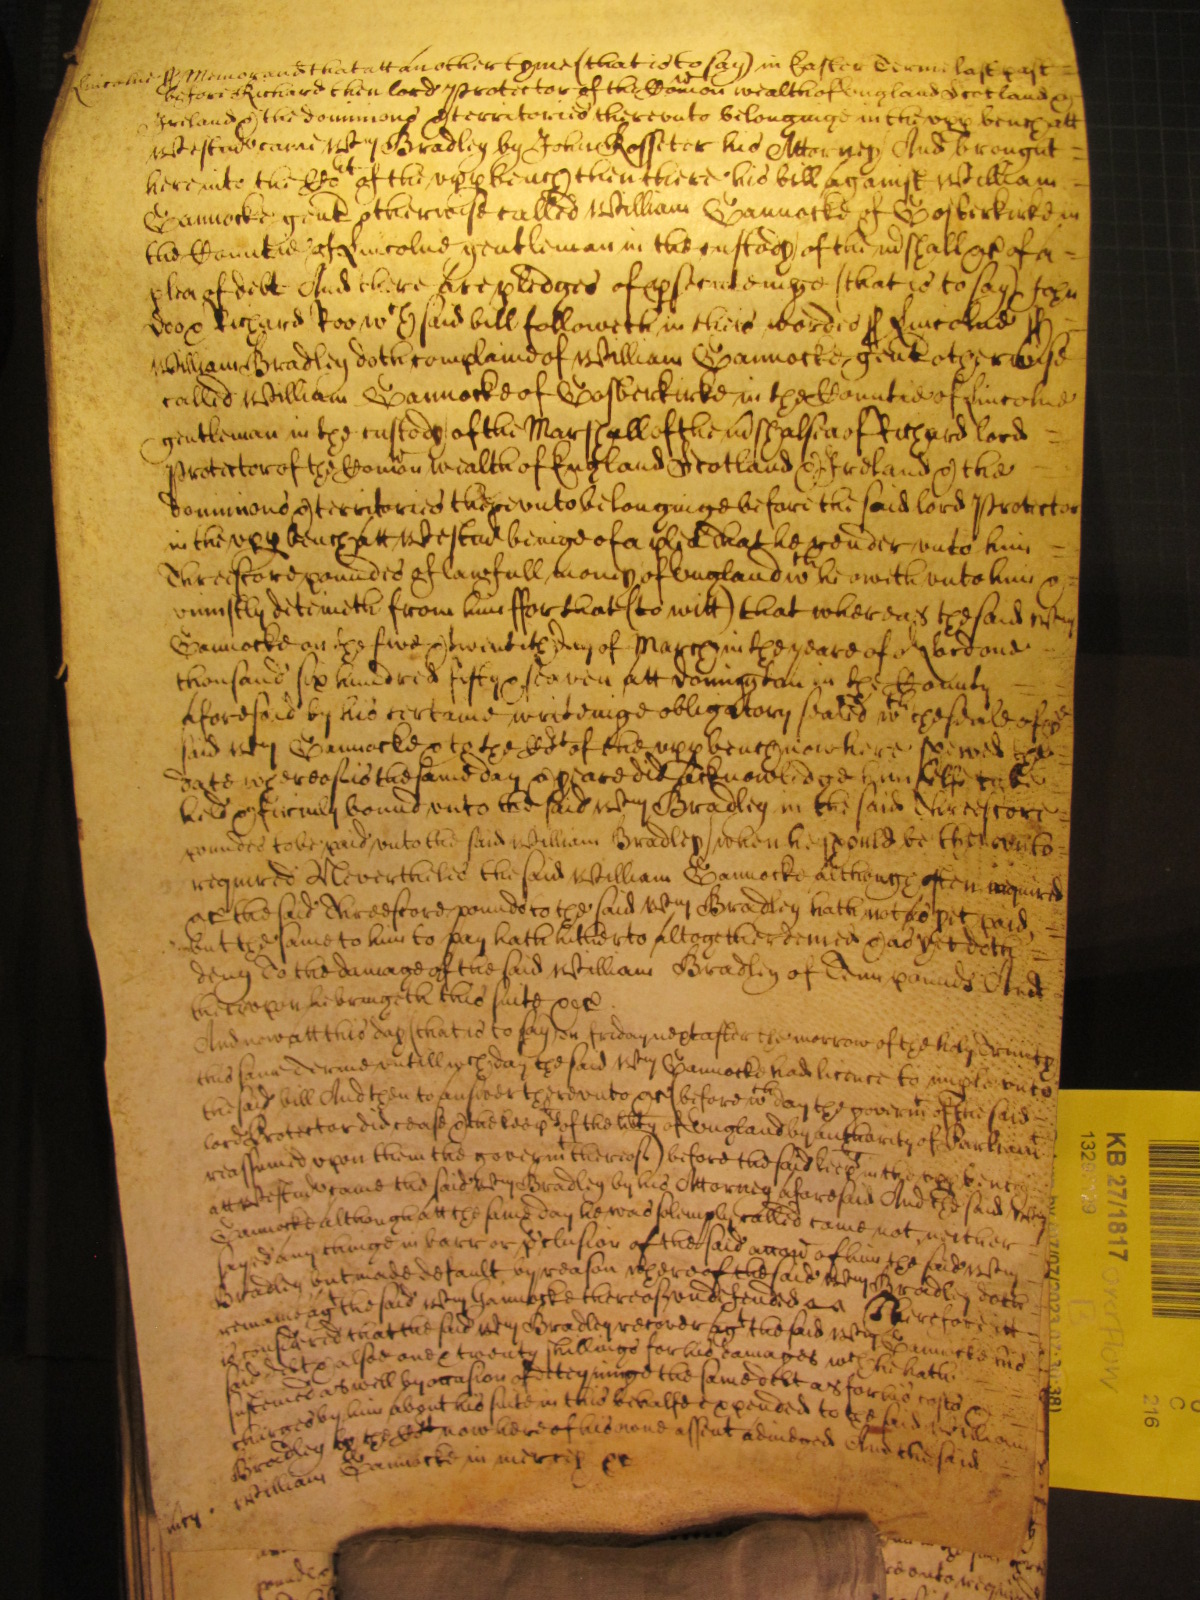 Lincolne ss Memorand that att another tyme (that is to say) in Easter Terme last past
before Richard then lord Protector of the Comon wealth of England Scotland &
Ireland & the dominions & territories thereunto belonginge in the upp bench att
Westm came Wm Bradley by John Rosseter his Attorney And brought
here into the Cort of the upp bench then there his bill against William
Gannocke gent otherwise called William Gannocke of Gosberkirke in
the Countie of Lincolne gentleman in the custody of the mshall &c of a
plea of debt And there are pledges of psecuteinge (that is to say) John
Doo & Richard Roo wch said bill followeth in theis wordes ss Lincolne ss
William Bradley doth complaine of William Gannocke gent otherwise
called William Gannocke of Gosberkirke in the Countie of Lincolne
gentleman in the custody of the Marshall of the mshalsea of Richard lord
Protector of the Comon wealth of England Scotland & Ireland & the
dominions & territories thereunto belonginge before the said lord Protector
in the upp bench att Westm beinge of a plea that he render unto him
Threescore poundes of lawfull money of England wch he oweth unto him &
uniustly deteineth from him ffor that (to witt) that whereas the said Wm
Gannocke on the five & twentith day of March in the yeare of or Lord one
thousand six hundred fifty & seaven att Donington in the County
aforesaid by his certaine writeinge obligatory sealed wth the seale of the
said Wm Gannocke & to the Cort of the upp bench now here shewed the
date whereof is the same day & yeare did acknowledge him selfe to be
held & firmly bound unto the said Wm Bradley in the said Threescore
poundes to be paid unto the said William Bradley when he should be thereunto
required Neverthelės the said William Gannocke although often required
&c the said Threescore pounds to the said Wm Bradley hath not as yet paid
but the same to him to pay hath hitherto altogether denied & as yet doth
deny To the damage of the said William Bradley of Tenn pounds And
thereupon he bringeth this suite &c
And now att this day (that is to say) on Friday next after the morrow of the holy Trinity
this same Terme untill wch day the said Wm Gannocke had licence to imple unto
the said bill And then to answer thereunto &c (before wch day the governt of the said
lord Protector did cease & the keeprs of the libty of England by authority of Parliamt
reassumed upon them the governt thereof) before the said keeprs in the upp bench
att Westm came the said Wm Bradley by his Attorney aforesaid And the said Wm
Gannocke although att the same day he was solemply called came not neither
sayed any thinge in barr or pclusion of the said accon of him the said Wm
Bradley but made default by reason whereof the said Wm Bradley doth
remaine agt the said Wm Gannocke thereof undefended &c Therefore itt
is considered that the said Wm Bradley recover agt the said Wm Gannocke his
said debt & alsoe one & twenty shillings for his damages wch he hath
susteined as well by occasion of deteyninge the same debt as for his costs &
charges by him about his suite in this behalfe expended to the said William
Bradley by the Cort now here of his owne assent adiudged And the said
William Gannocke in mercy &c
mcy
KB 27/1817
overflow
216